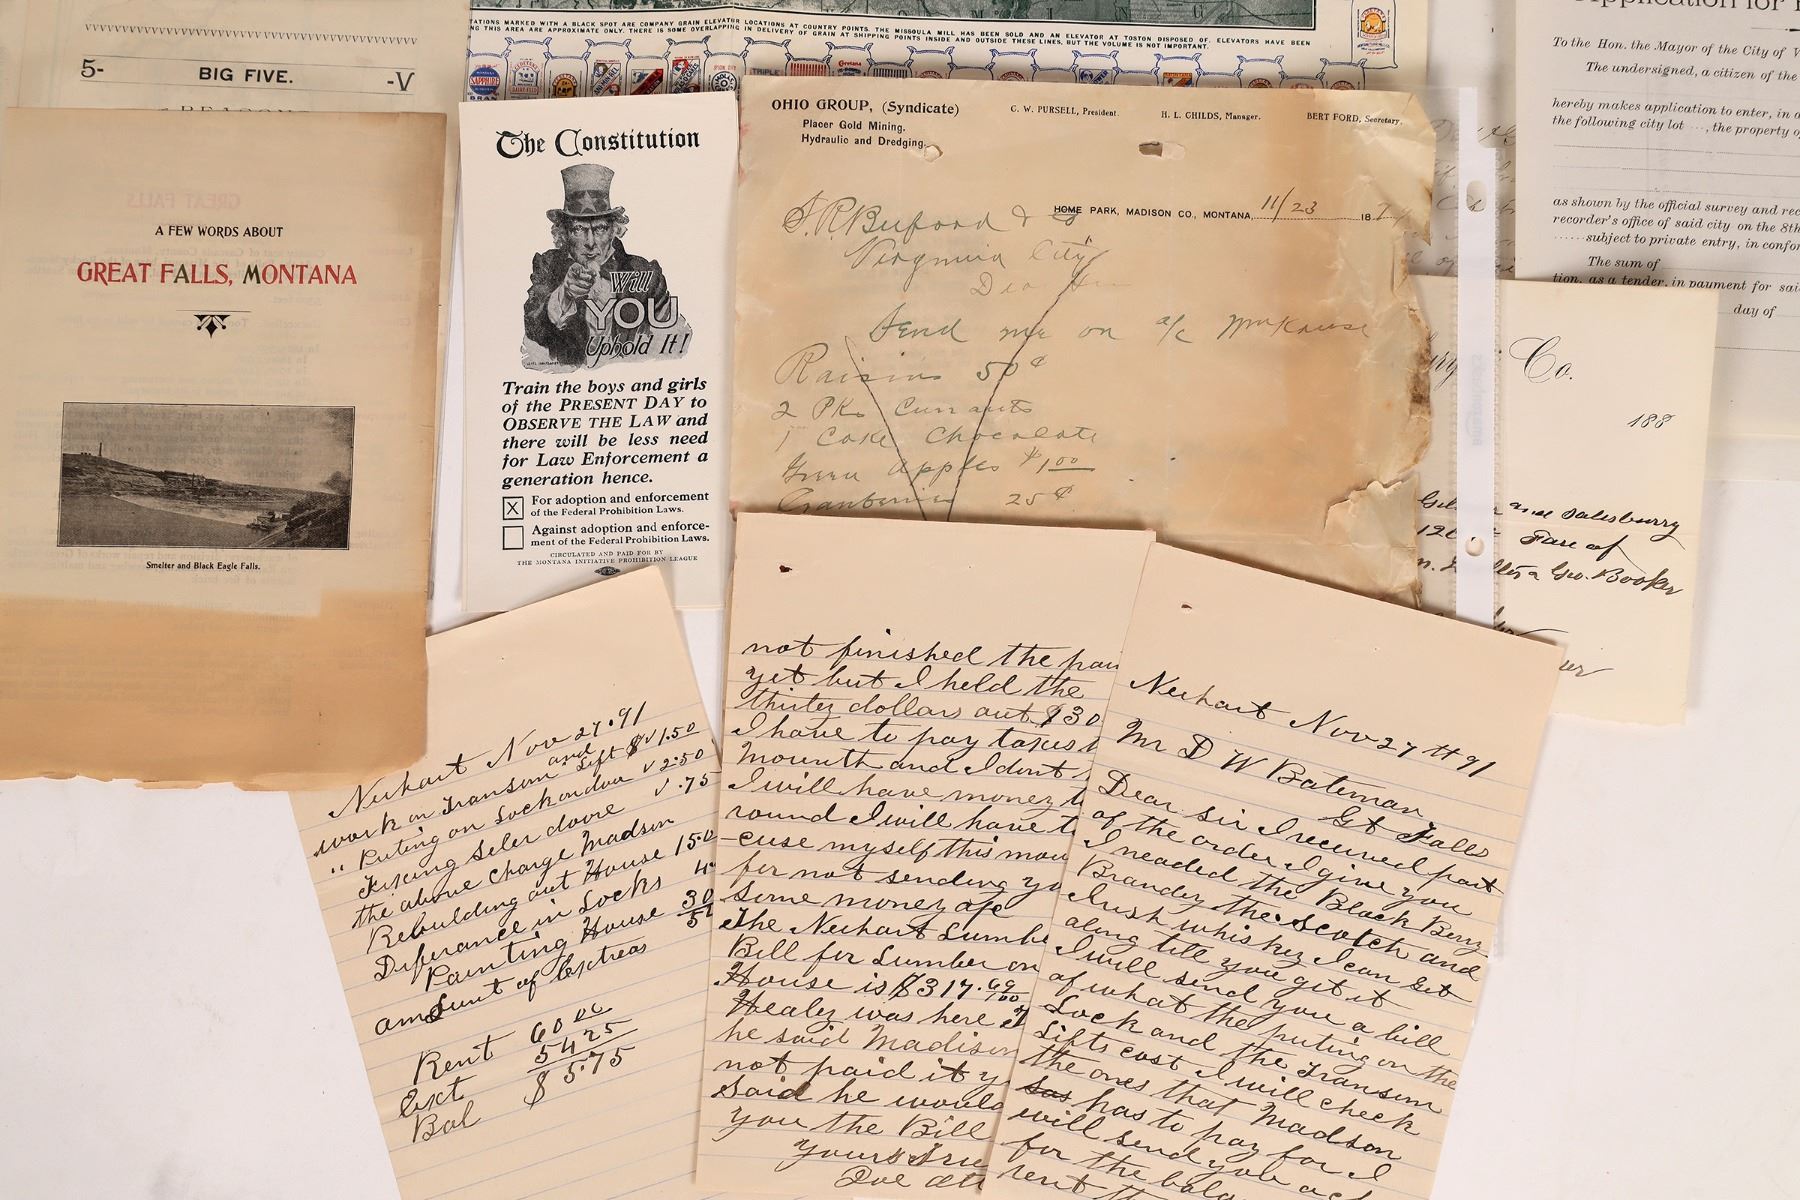 5-
BIG FIVE.
-V
TATIONS MARKED WITH A BLACK SPOT ARE COMPANY GRAIN ELEVATOR LOCATIONS AT COUNTRY POINTS. THE MISSOULA MILL HAS BEEN SOLD AND AN ELEVATOR AT TOSTON DISPOSED OF. ELEVATORS HAVE BEEN
NG THIS AREA ARE APPROXIMATE ONLY. THERE IS SOME OVERLAPPING IN DELIVERY OF GRAIN AT SHIPPING POINTS INSIDE AND OUTSIDE THESE LINES, BUT THE VOLUME IS NOT IMPORTANT.
SAPPHIRE
A FEW WORDS ABOUT
GREAT FALLS, MONTANA
Smelter and Black Eagle Falls.
The Constitution
Will
YOU
Uphold It!
Train the boys and girls
of the PRESENT DAY to
OBSERVE THE LAW and
there will be less need
for Law Enforcement a
generation hence.
X For adoption and enforcement
of the Federal Prohibition Laws.
Against adoption and enforce-
ment of the Federal Prohibition Laws.
CIRCULATED AND PAID FOR BY
THE MONTANA INITIATIVE PROHIBITION LEAGUE
OHIO GROUP, (Syndicate)
Placer Gold Mining.
Hydraulic and Dredging.
C. W. PURSELL, President.
H. L. CHILDS, Manager.
BERT FORD, Secretary.
HOME PARK, MADISON CO., MONTANA, 11/23 18
S. R. Buford & Co
Virginia City
Dear Sir
Send me on a/c Wm Krause
Raisins 50¢
2 Pk Currants
1 Cake Chocolate
Green Apples $1.00
Cranberries 25¢
To the Hon. the Mayor of the City of V
The undersigned, a citizen of the
hereby makes application to enter, in a
the following city lot ..., the property o
as shown by the official survey and rec
recorder's office of said city on the 8th
subject to private entry, in confor
The sum of
tion, as a tender, in payment for sai
day of
Co.
188
and Salesburry
Fare of
Geo. Booker
Neihart Nov 27.91
work on Transom and Lift $1.50
" Puting on Lock on doa 2.50
Fixing Seler doore .75
the above charge Madson
Rebuilding out House 15.0
Diferance in Locks 4
Painting House 30
amount of Extreas 5
Rent 60 00
Ext 54 25
Bal $5.75
not finished the pa
yet but I held the
thirtey dollars out $30
I have to pay taxes
mounth and I dont
I will have money t
round I will have t
-cuse myself this mou
for not sending yo
some money
The Neihart Lumbe
Bill for Lumber on
House is $317.69/100
Healey was here
he said Madison
not paid it y
Said he would
you the Bill
yours Tru
Neihart Nov 27th 91
Mr D W Bateman
Gt Falls
Dear Sir I received part
of the order I give you
I neaded the Black Berry
Brandey the Scotch and
Irish whiskey I can get
along till you get it
I will send you a bill
of what the puting on the
Lock and the Transom
Lifts cost I will check
the ones that Madson
has to pay for I
will send you
for the bala
rent